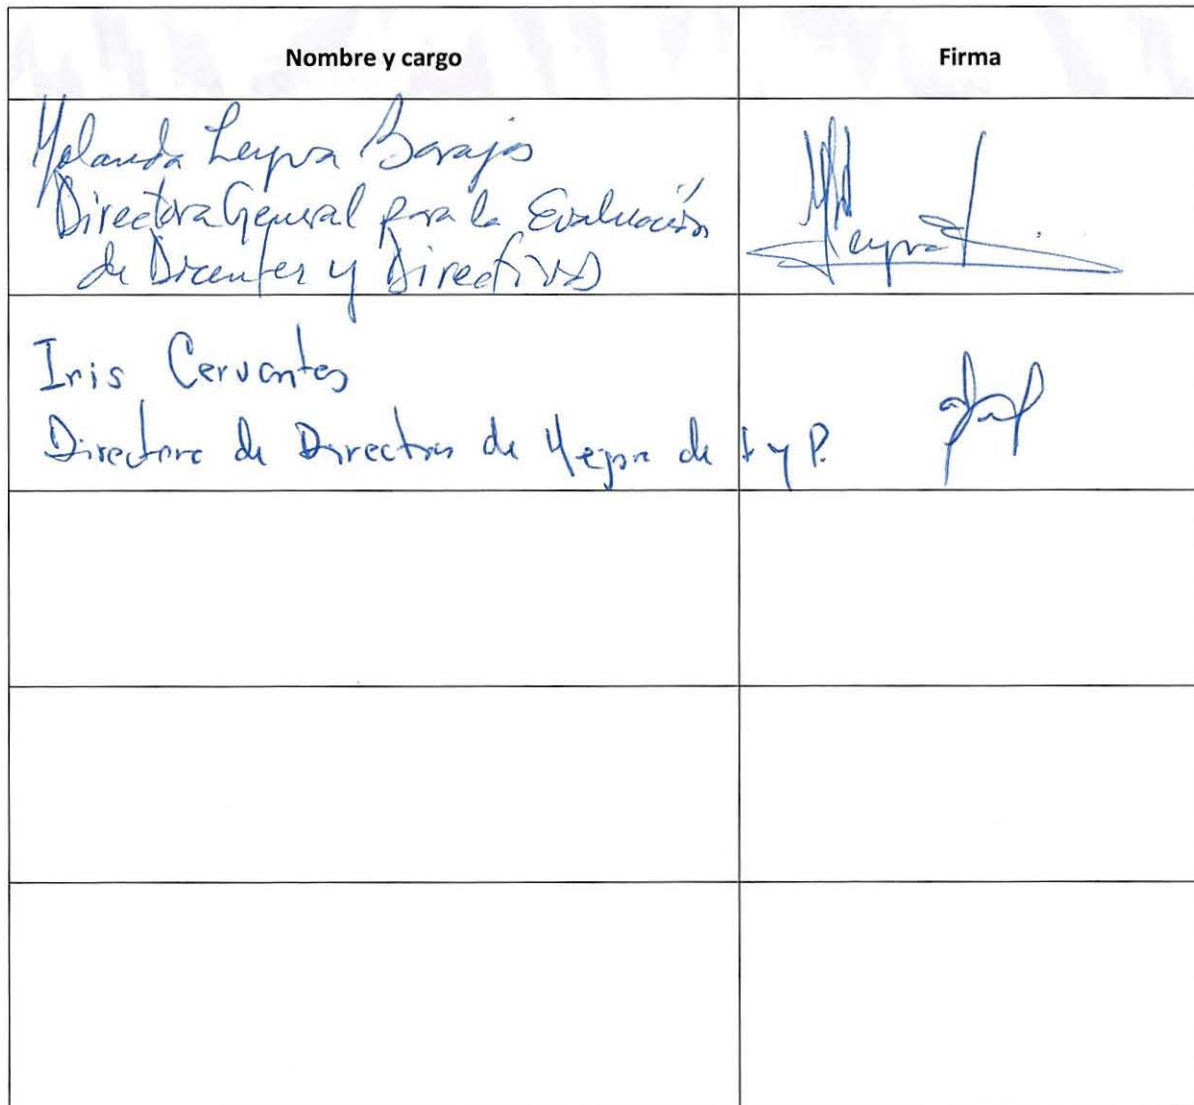 Nombre y cargo
Firma
Yolanda Leyva Barajas
Directora General para la Evaluación
de Docentes y Directivos
Leyva
Iris Cervantes
Directora de Directrices de Mejora de I y P.